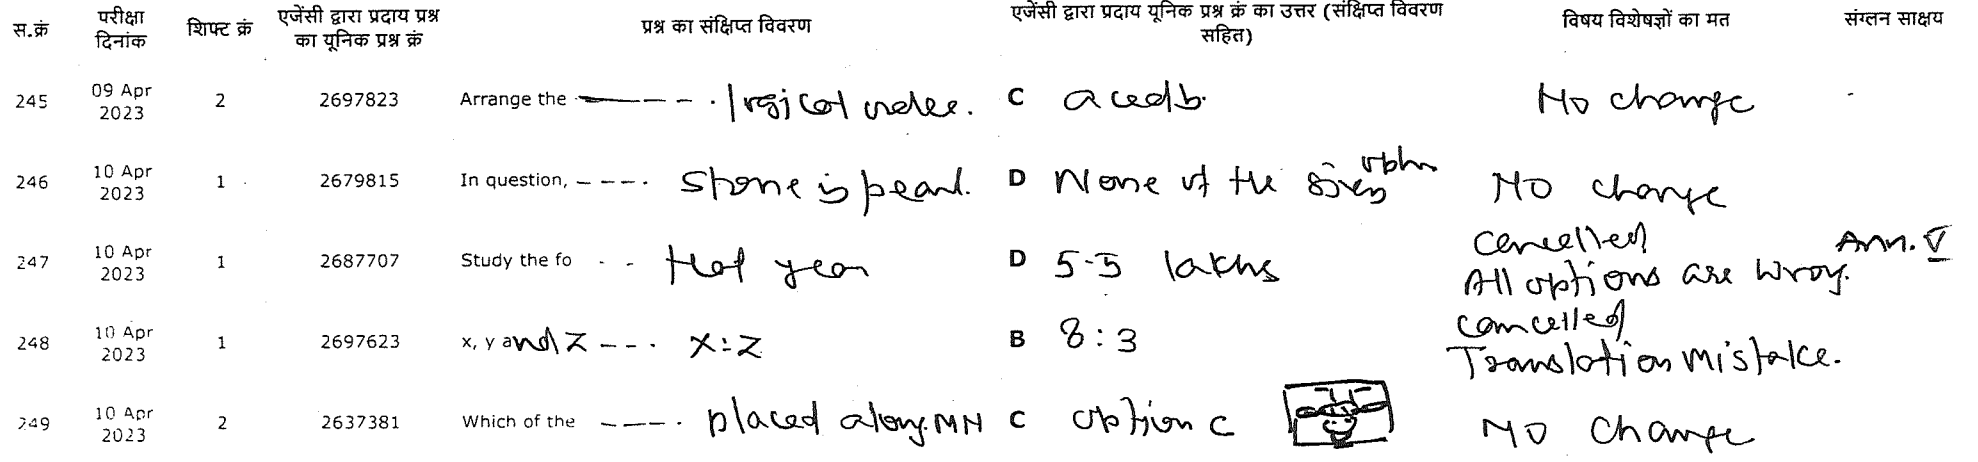 स.क्रं परीक्षा दिनांक शिफ्ट क्रं एजेंसी द्वारा प्रदाय प्रश्न का यूनिक प्रश्न क्रं प्रश्न का संक्षिप्त विवरण एजेंसी द्वारा प्रदाय यूनिक प्रश्न क्रं का उत्तर (संक्षिप्त विवरण सहित) विषय विशेषज्ञों का मत संग्लन साक्षय
245 09 Apr 2023 2 2697823 Arrange the ---- . logical order. C acedb. No change
246 10 Apr 2023 1 2679815 In question, ---- . stone is pearl. D None of the given option No change
247 10 Apr 2023 1 2687707 Study the fo - - that year D 5.5 lakhs Cancelled All options are wrong. Ann. V
248 10 Apr 2023 1 2697623 x, y and z --- . x:z B 8:3 cancelled Translation mistake.
249 10 Apr 2023 2 2637381 Which of the ---- . placed along MN C option C No change